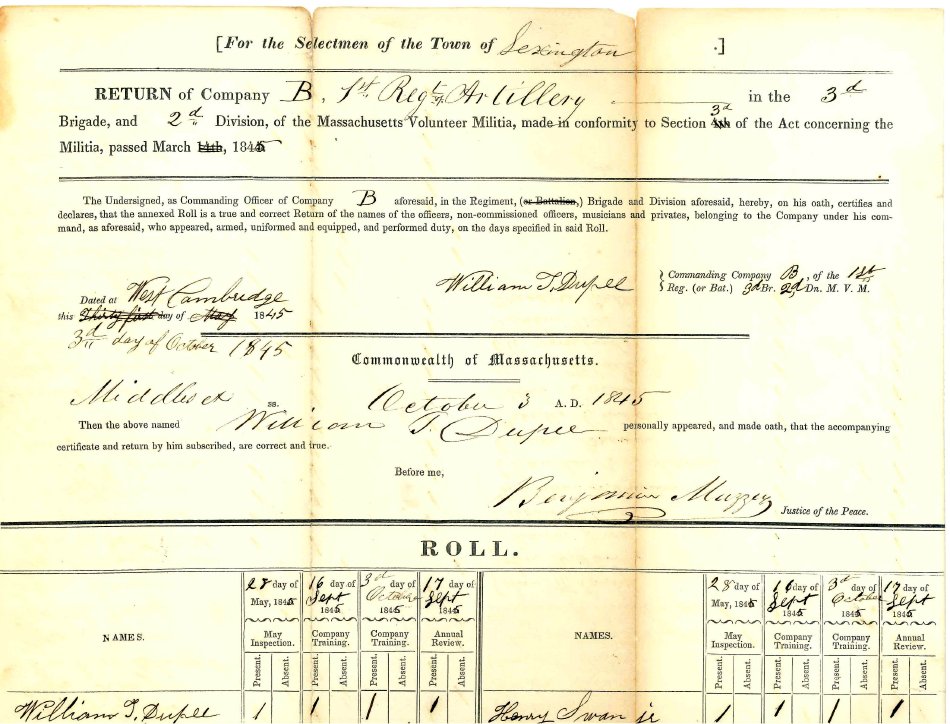 [For the Selectmen of the Town of Lexington .]
RETURN of Company B, 1st Regt of Artillery in the 3d
Brigade, and 2d Division, of the Massachusetts Volunteer Militia, made in conformity to Section 4th 3d of the Act concerning the
Militia, passed March 14th, 1845
The Undersigned, as Commanding Officer of Company B aforesaid, in the Regiment, (or Battalion,) Brigade and Division aforesaid, hereby, on his oath, certifies and
declares, that the annexed Roll is a true and correct Return of the names of the officers, non-commissioned officers, musicians and privates, belonging to the Company under his com-
mand, as aforesaid, who appeared, armed, uniformed and equipped, and performed duty, on the days specified in said Roll.
William T. Dupee } Commanding Company B, of the 1st
} Reg. (or Bat.) 3d Br. 2d Dn. M. V. M.
Dated at West Cambridge
this Thirty first day of May 1845
3d day of October 1845
Commonwealth of Massachusetts.
Middlesex ss. October 3 A.D. 1845
Then the above named William T. Dupee personally appeared, and made oath, that the accompanying
certificate and return by him subscribed, are correct and true.
Before me,
Benjamin Muzzey Justice of the Peace.
ROLL.
NAMES. 28 day of May, 1845 16 day of Sept 1845 3d day of October 1845 17 day of Sept 1845 NAMES. 28 day of May, 1845 16 day of Sept 1845 3d day of October 1845 17 day of Sept 1845
May Inspection. Company Training. Company Training. Annual Review. May Inspection. Company Training. Company Training. Annual Review.
Present. Absent. Present. Absent. Present. Absent. Present. Absent. Present. Absent. Present. Absent. Present. Absent. Present. Absent.
William T. Dupee 1 1 1 1 Henry Swan jr 1 1 1 1